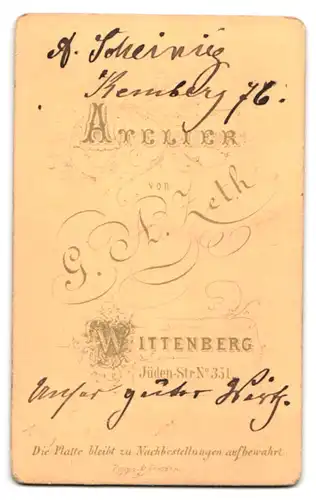 A. Scheinig
Kemberg 76.
ATELIER
von
G. A. Zeth
WITTENBERG
Jüden-Str No 351.
Unser guter Wirt.
Die Platte bleibt zu Nachbestellungen aufbewahrt